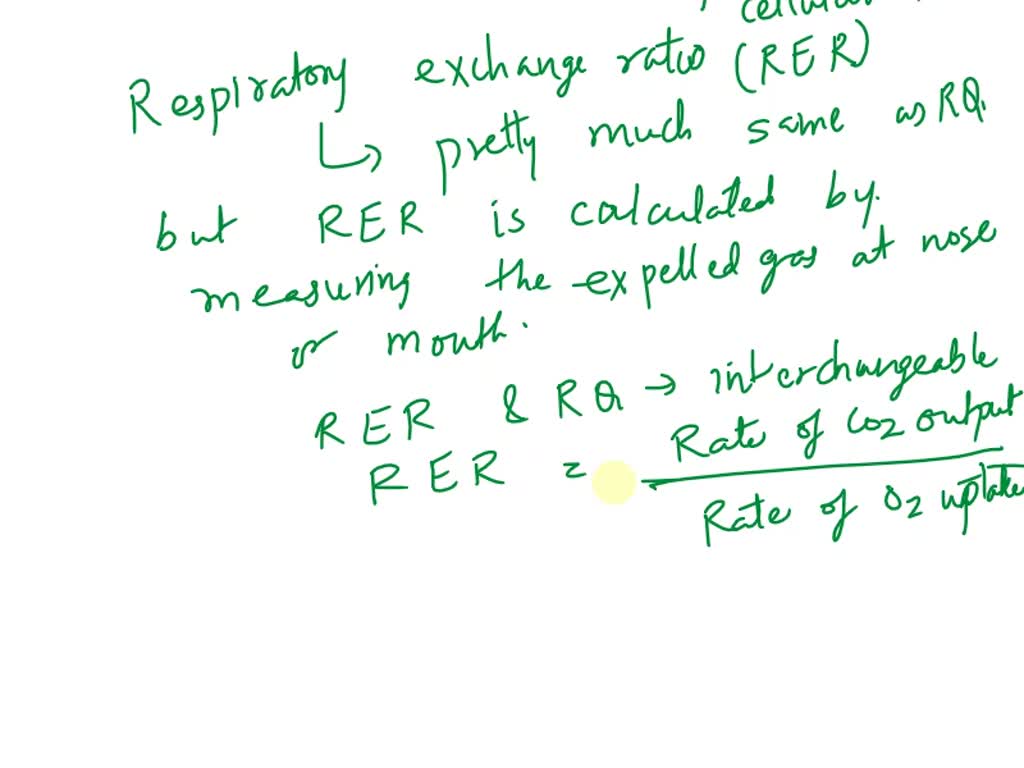 cellular
Respiratory exchange ratio (RER)
↳ pretty much same as RQ.
but RER is calculated by.
measuring the expelled gas at nose
or mouth.
RER & RQ → interchangeable
RER = Rate of CO2 output
Rate of O2 uptake